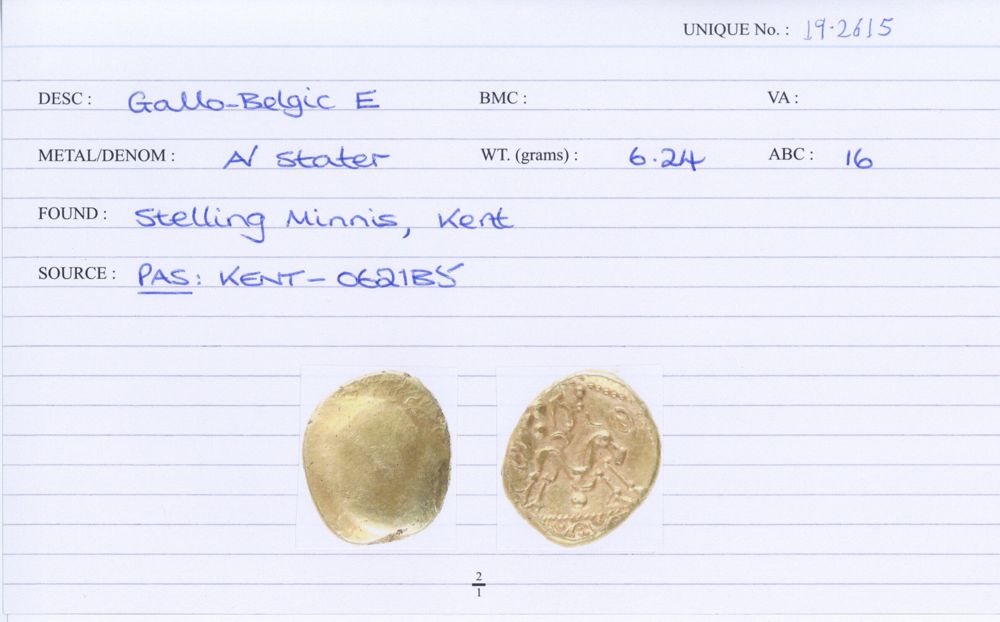 UNIQUE No. : 19.2615
DESC : Gallo-Belgic E BMC : VA :
METAL/DENOM : A/ Stater WT. (grams) : 6.24 ABC : 16
FOUND : Stelling Minnis, Kent
SOURCE : PAS: KENT-0621B5
2
1